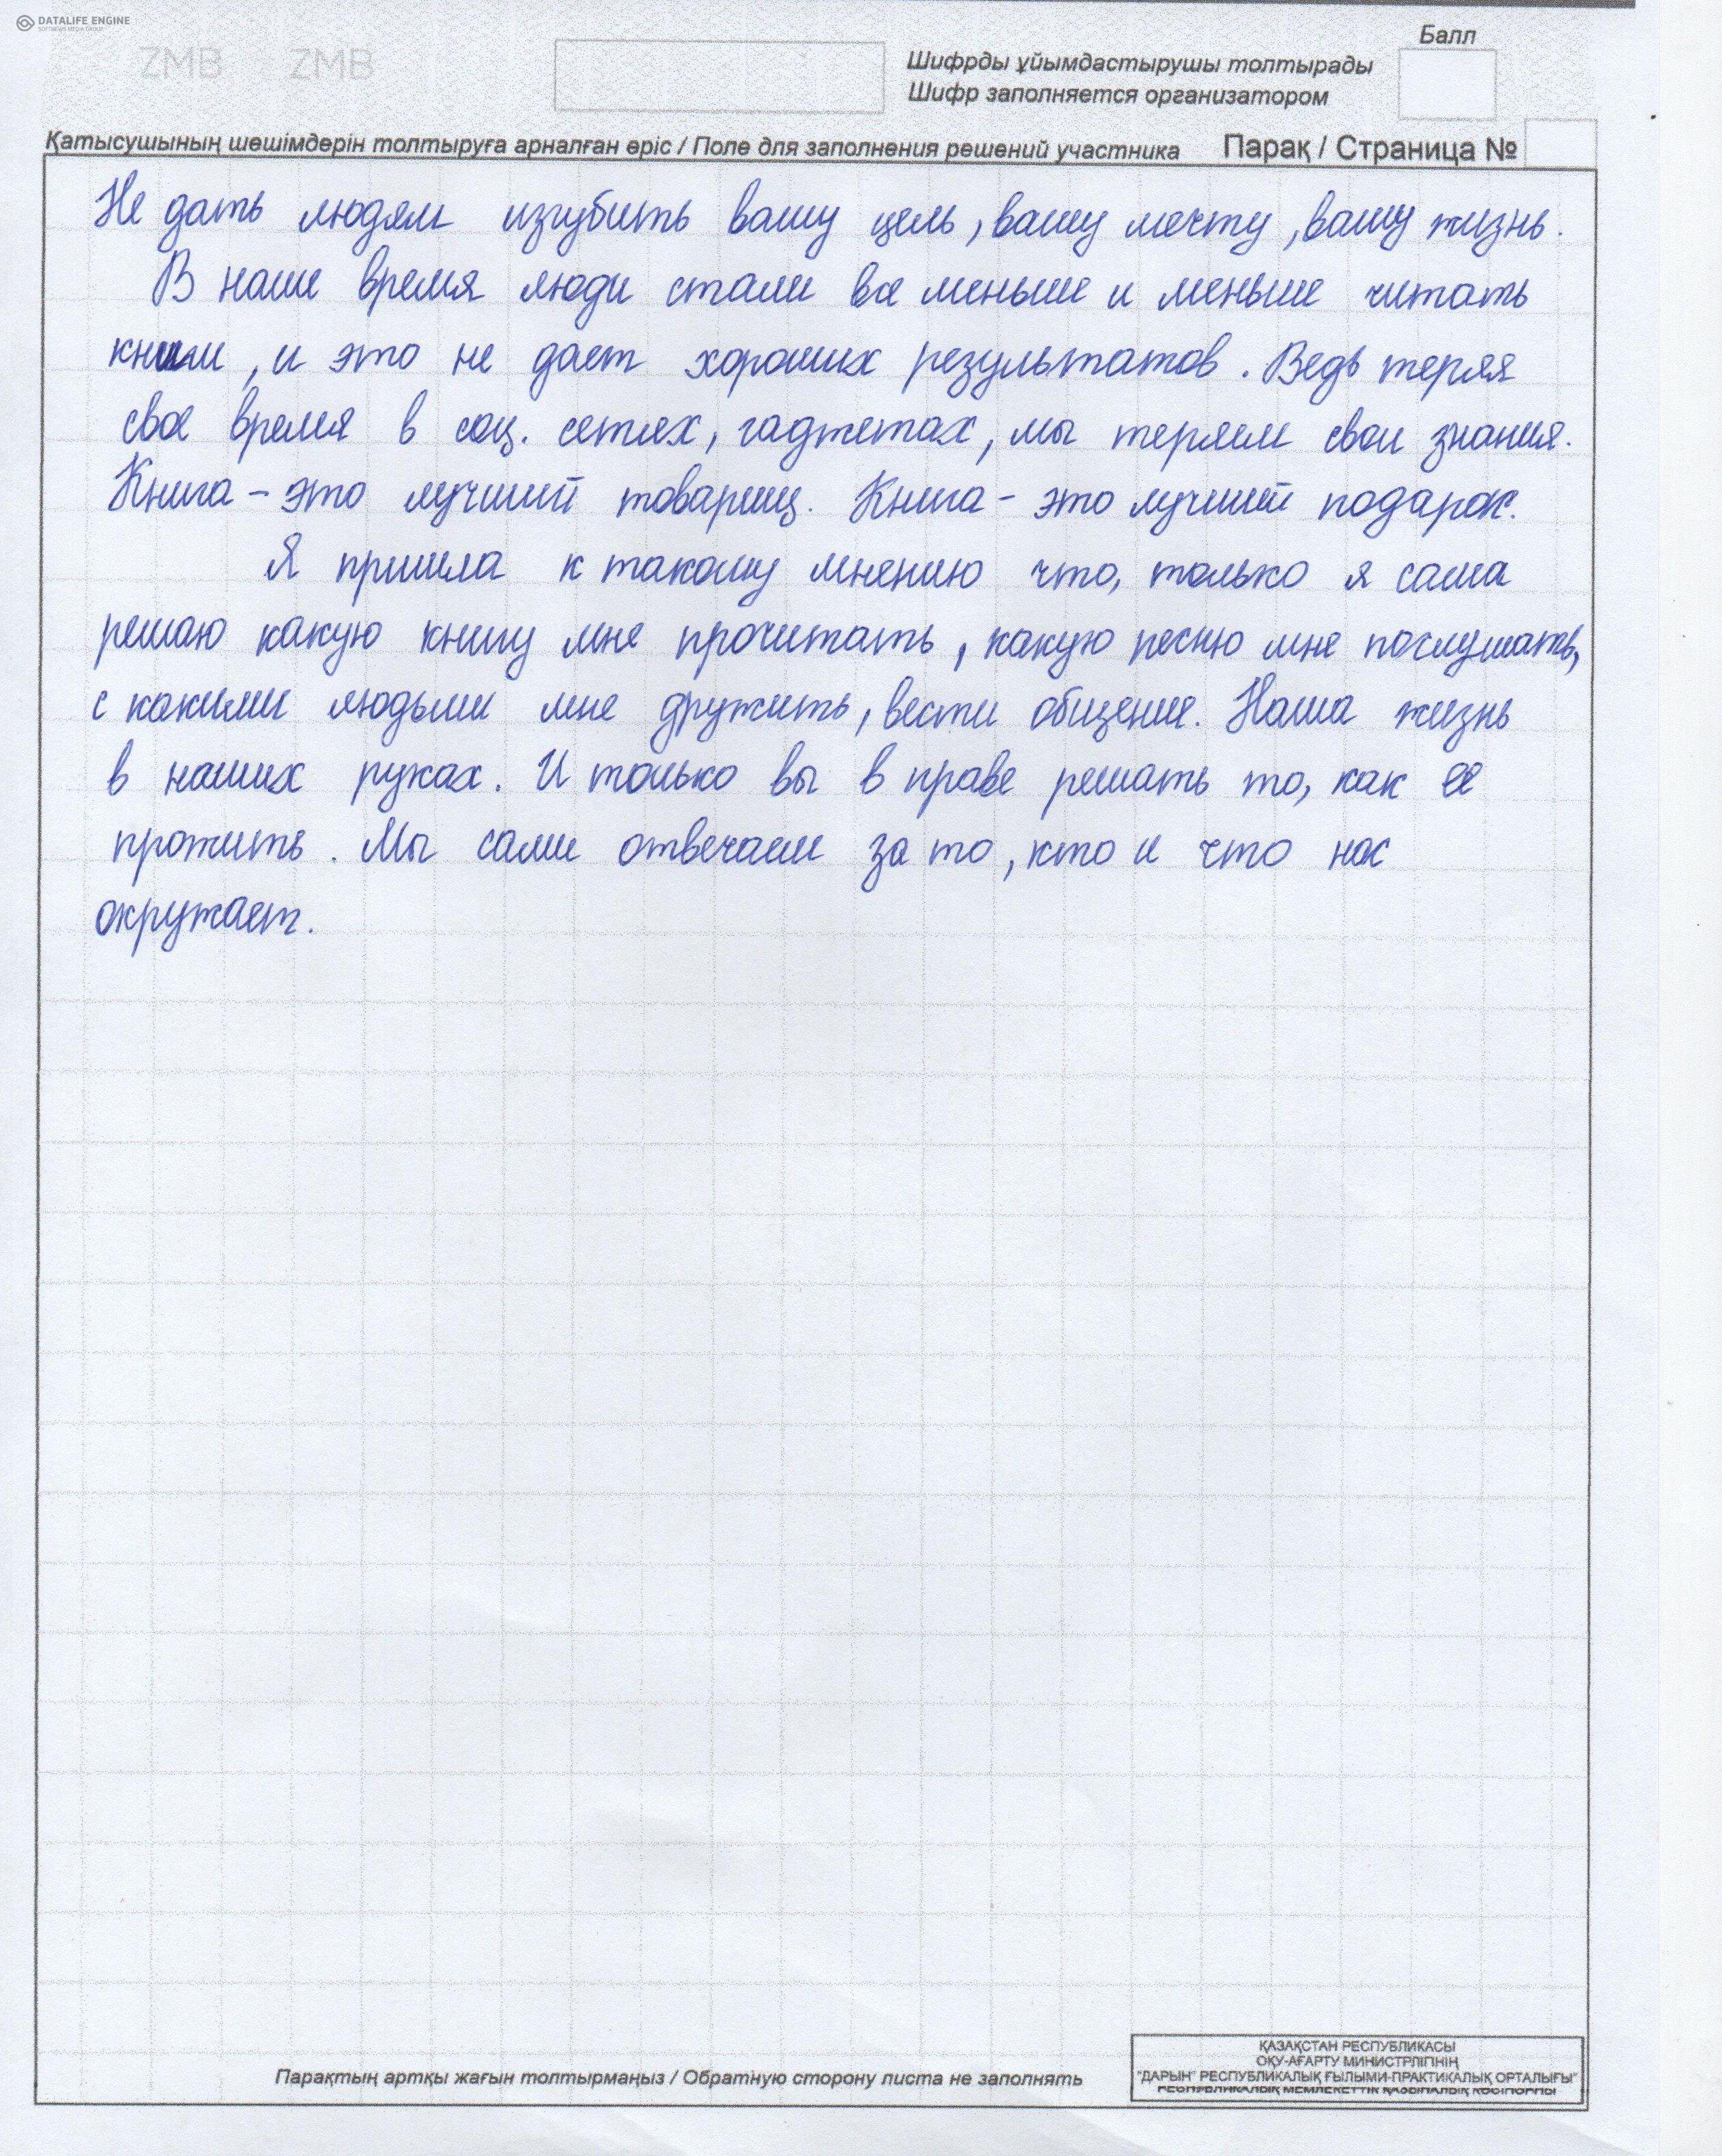 DATALIFE ENGINE
SOFTNEWS MEDIA GROUP
ZMB ZMB
Балл
Шифрды ұйымдастырушы толтырады
Шифр заполняется организатором
Қатысушының шешімдерін толтыруға арналған өріс / Поле для заполнения решений участника Парақ / Страница №
Не дать людям изгубить вашу цель, вашу мечту, вашу жизнь.
В наше время люди стали все меньше и меньше читать
книги, и это не дает хороших результатов. Ведь теряя
свое время в соц. сетях, гаджетах, мы теряем свои знания.
Книга – это лучший товарищ. Книга – это лучший подарок.
Я пришла к такому мнению что, только я сама
решаю какую книгу мне прочитать, какую песню мне послушать,
с какими людьми мне дружить, вести общение. Наша жизнь
в наших руках. И только вы в праве решать то, как ее
прожить. Мы сами отвечаем за то, кто и что нас
окружает.
Парақтың артқы жағын толтырмаңыз / Обратную сторону листа не заполнять
ҚАЗАҚСТАН РЕСПУБЛИКАСЫ
ОҚУ-АҒАРТУ МИНИСТРЛІГІНІҢ
"ДАРЫН" РЕСПУБЛИКАЛЫҚ ҒЫЛЫМИ-ПРАКТИКАЛЫҚ ОРТАЛЫҒЫ"
РЕСПУБЛИКАЛЫҚ МЕМЛЕКЕТТІК ҚАЗЫНАЛЫҚ КӘСІПОРНЫ